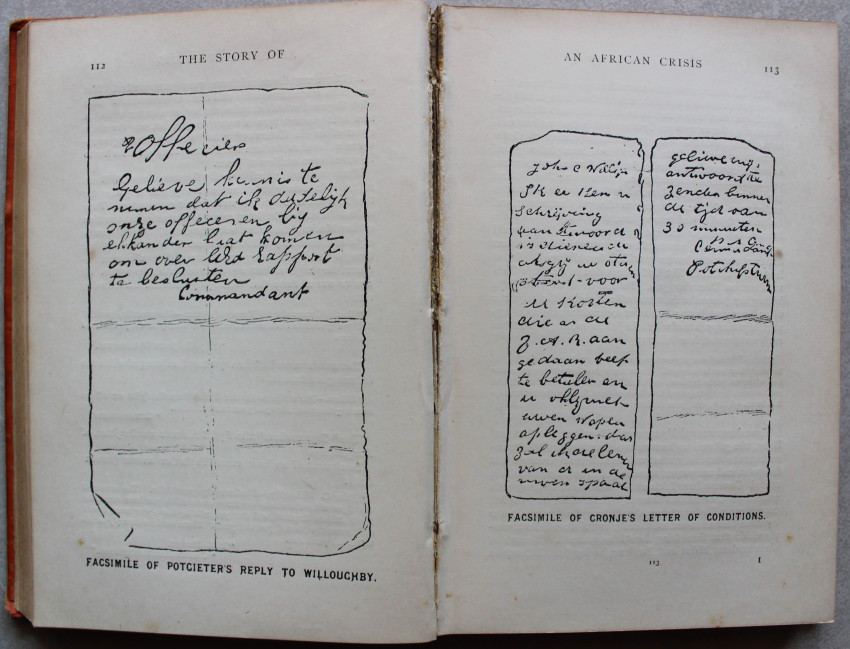 112
THE STORY OF
Officier
Gelieve kennis te
nemen dat ik dadelijk
onze officeren bij
elkander laat komen
om over UEd rapport
te besluiten
Commandant
FACSIMILE OF POTGIETER'S REPLY TO WILLOUGHBY.
AN AFRICAN CRISIS
113
John C Willo
Ik er ken u
schrijving
van
is dienende
voor
U Kosten
die as de
Z.A.R. aan
gedaan heef
te betalen en
u
uwen wapen
van er in de
uwen
gelieve my,
antwoord te
zenden binnen
de tijd van
30 minuten
Potchefstroom
FACSIMILE OF CRONJE'S LETTER OF CONDITIONS.
113
I